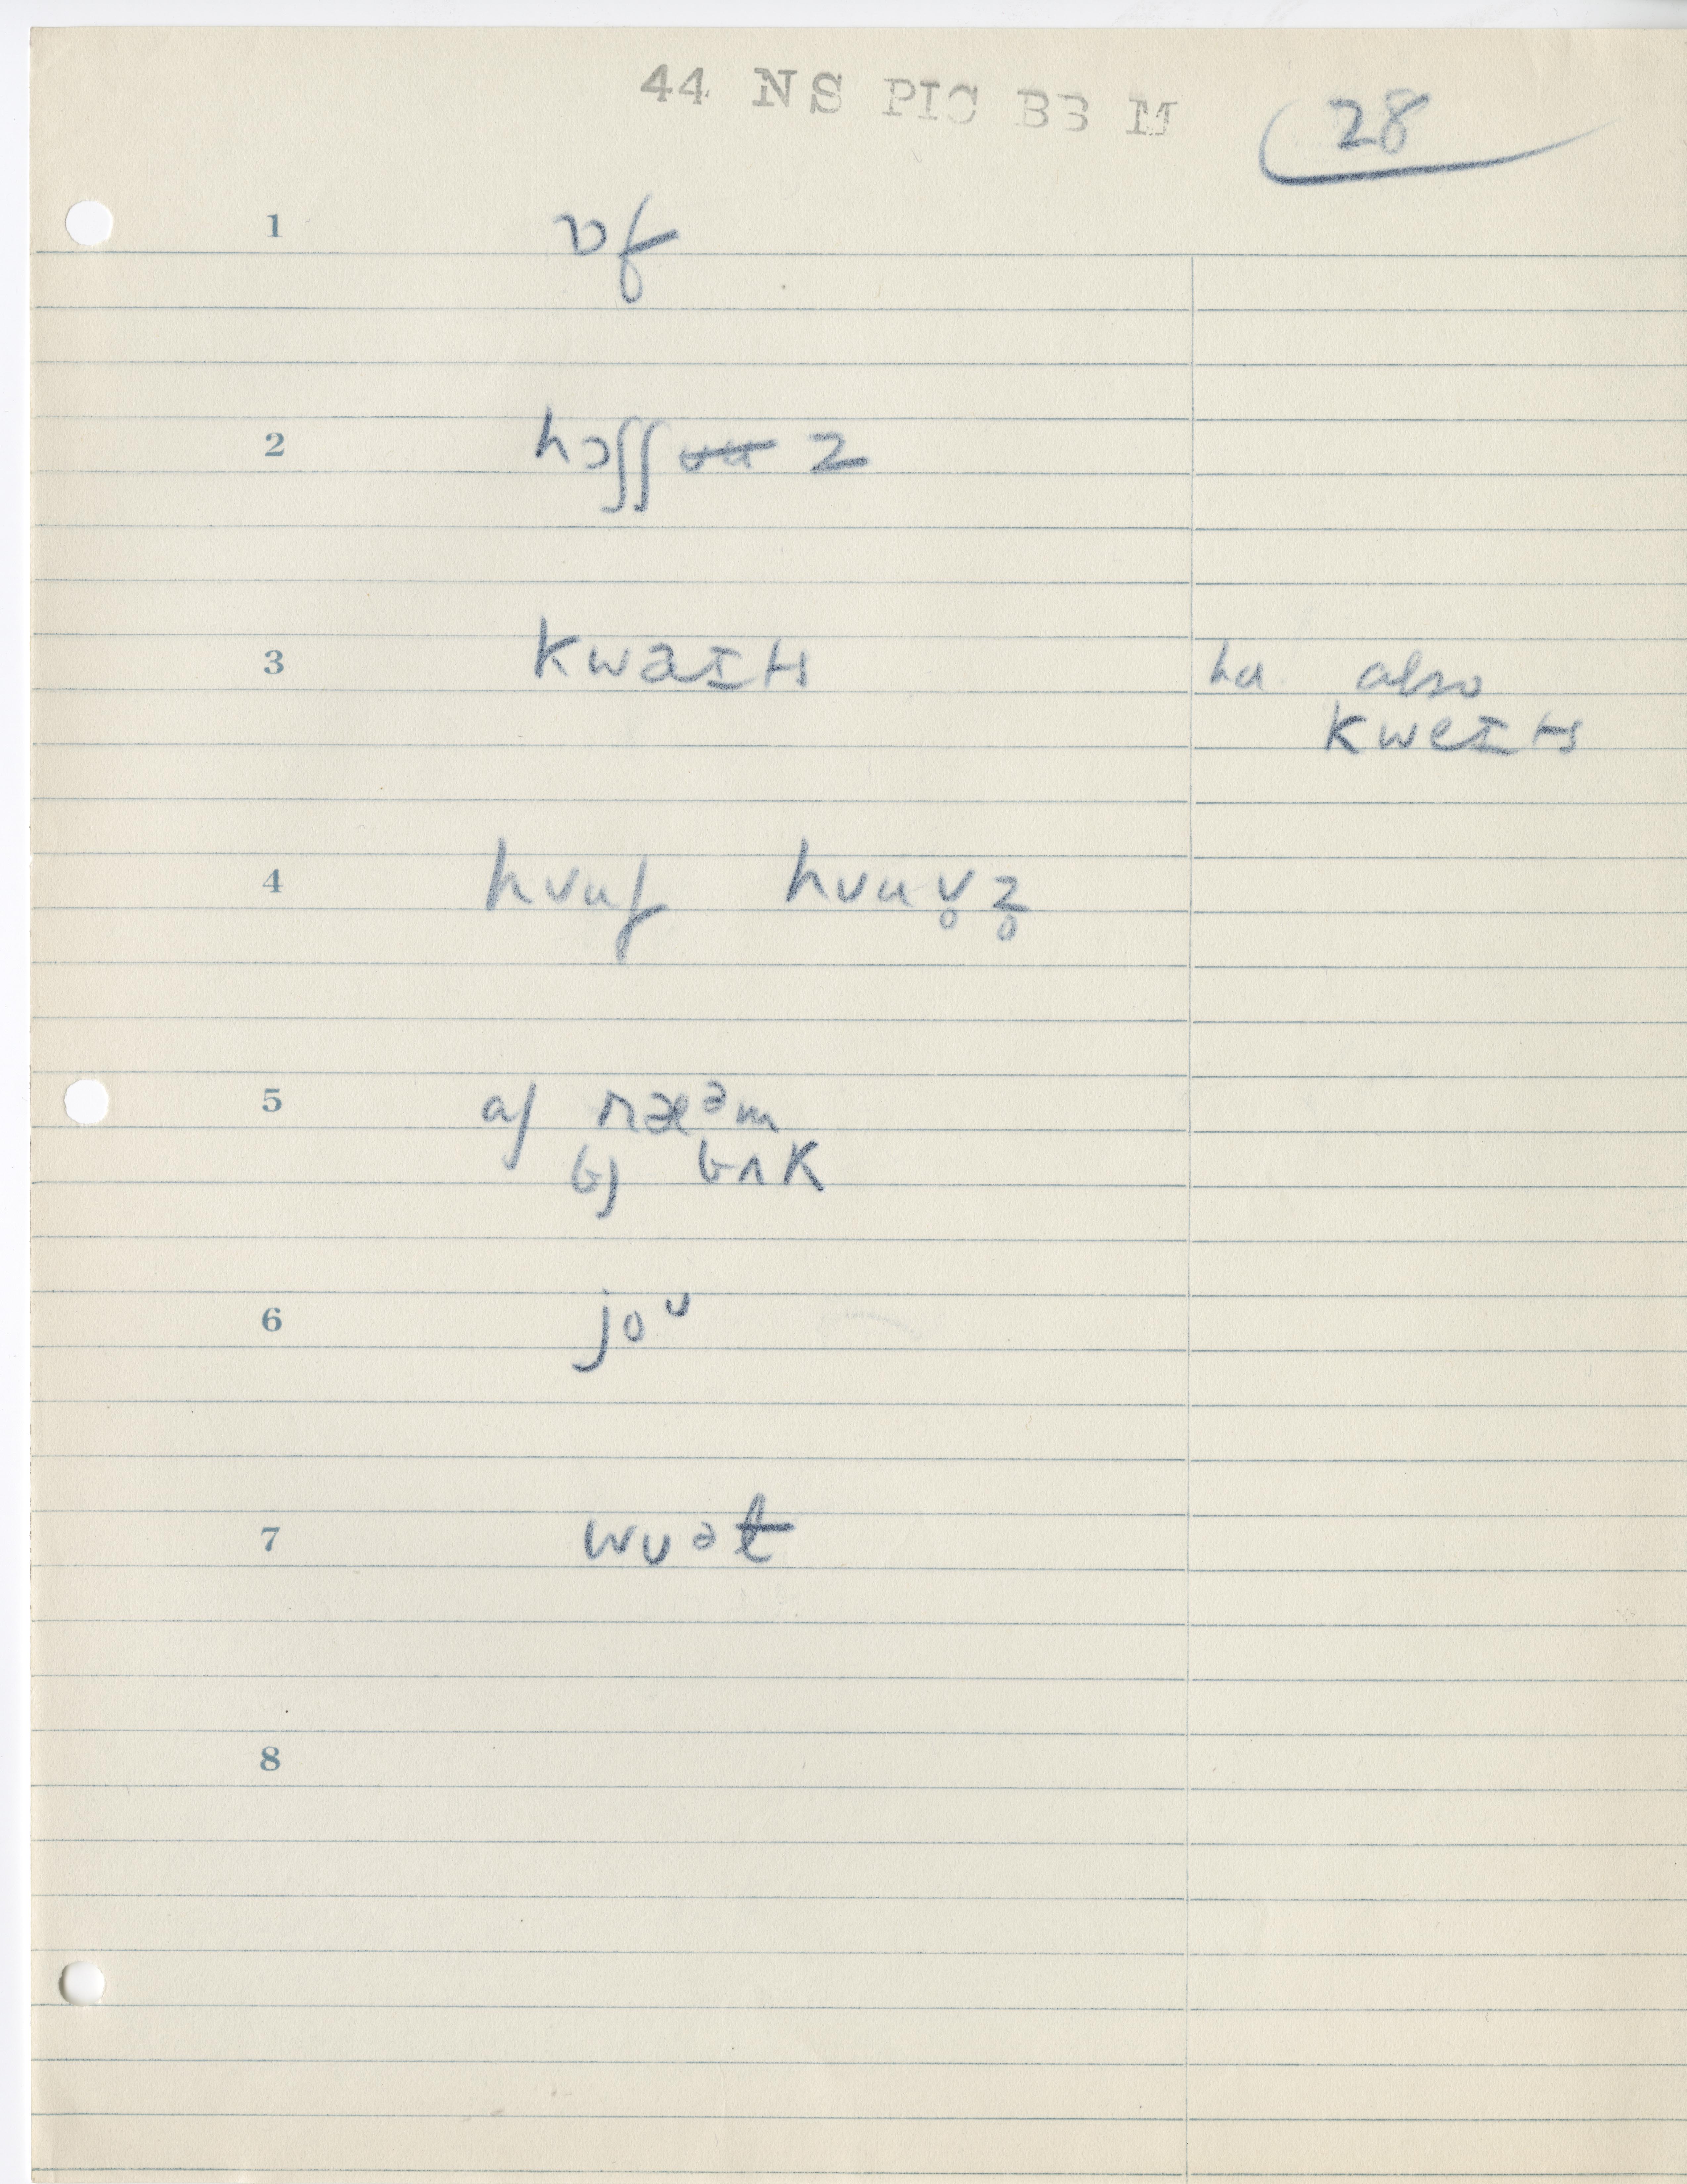 44 NS PIC BB M
28
1 ɒf
2 hɔʃʃ z
3 kwaɪ ha also
kweɪ
4 hvɑf hvɑv̥z̥
5 a) ræᵊm
b) bʌk
6 joᵁ
7 wʊət
8